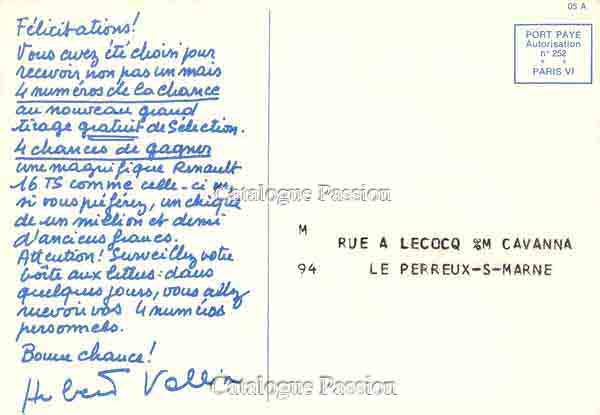 05 A
PORT PAYÉ
Autorisation
n° 252
PARIS VI
Félicitations!
Vous avez été choisi pour
recevoir non pas un mais
4 numéros de la chance
au nouveau grand
tirage gratuit de Sélection.
4 chances de gagner
une magnifique Renault
16 TS comme celle-ci ou,
si vous préférez, un chèque
de un million et demi
d'anciens francs.
Attention! Surveillez votre
boîte aux lettres: dans
quelques jours, vous allez
recevoir vos 4 numéros
personnels.
Bonne chance!
Hubert
M
RUE A LECOCQ %M CAVANNA
94 LE PERREUX-S-MARNE
Catalogue Passion
Catalogue Passion